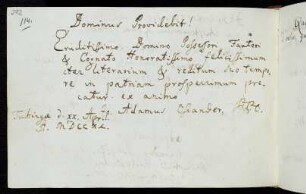 Dominus Providebit!
Eruditissimo Domino Possessori, Fautori
& Cognato Honoratissimo felicissimum
iter literarium & reditum suo tempo,
re in patriam prosperrimum pre,
catur ex animo
Tubingæ d. xx. April. Adamus Osiander,
MDCCXL.